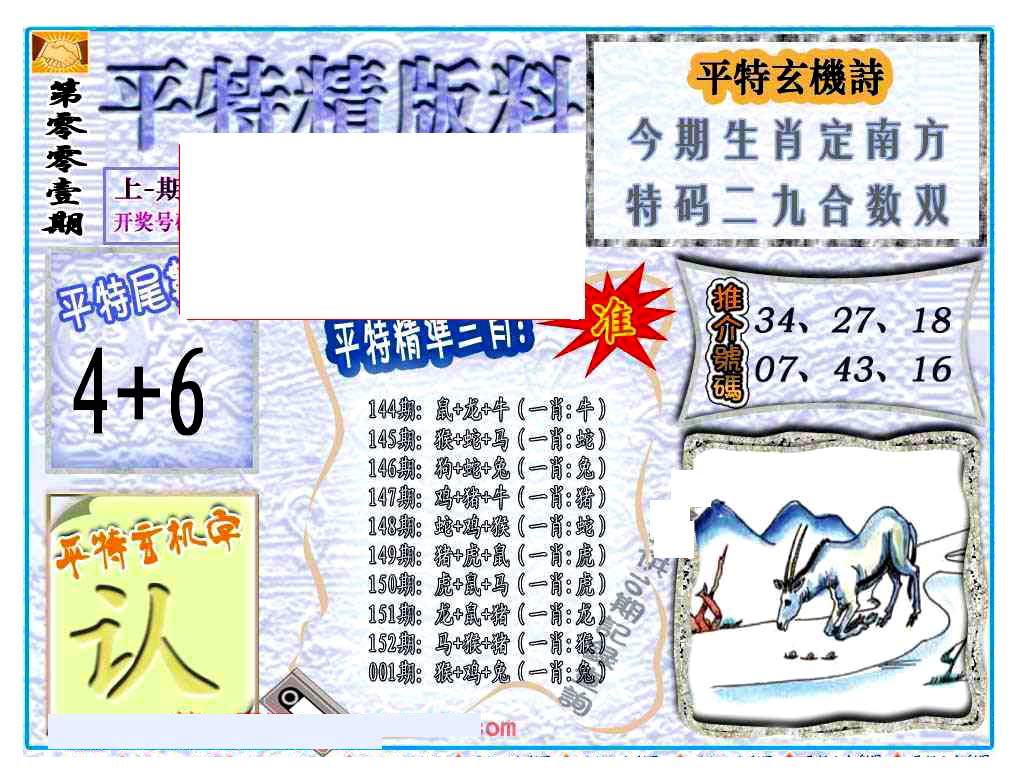 平特精版料
第零零壹期
上-期
开奖号
平特玄機詩
今期生肖定南方
特码二九合数双
平特尾
4+6
准
推介號碼
34、27、18
07、43、16
平特精準三肖!
144期: 鼠+龙+牛 (一肖:牛)
145期: 猴+蛇+马 (一肖:蛇)
146期: 狗+蛇+兔 (一肖:兔)
147期: 鸡+猪+牛 (一肖:猪)
148期: 蛇+鸡+猴 (一肖:蛇)
149期: 猪+虎+鼠 (一肖:虎)
150期: 虎+鼠+马 (一肖:虎)
151期: 龙+鼠+猪 (一肖:龙)
152期: 马+猴+猪 (一肖:猴)
001期: 猴+鸡+兔 (一肖:兔)
平特玄机字
认
.com